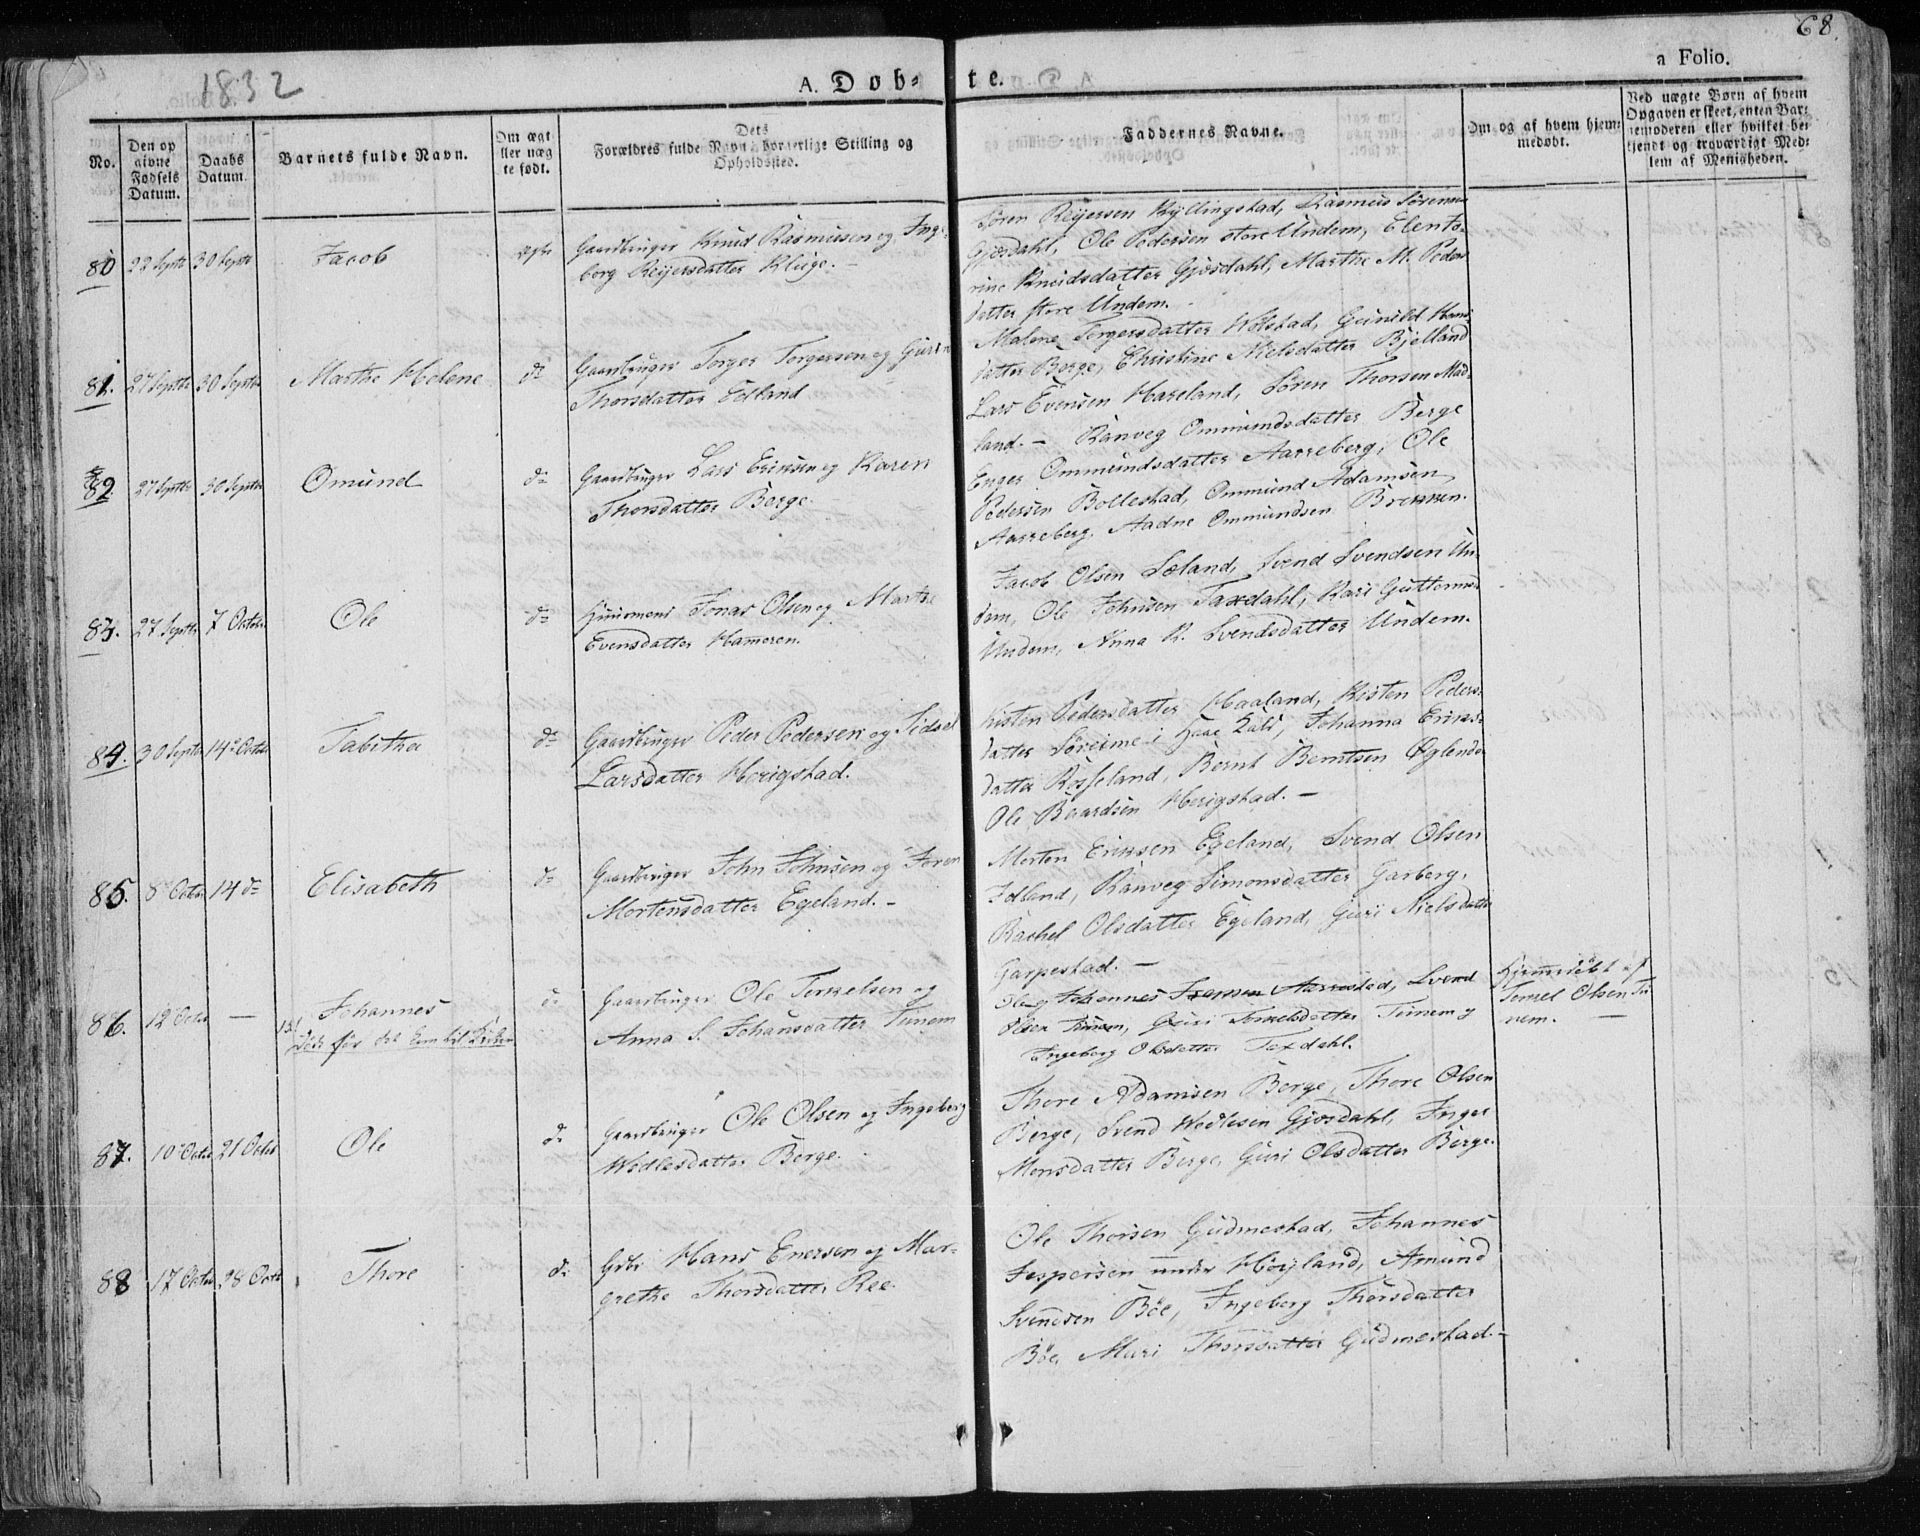 68.
1832
A. Døb-
te.
a Folio.
No.
Den op
givne
Fødsels
Datum.
Daabs
Datum.
Barnets fulde Navn.
Om ægt
ller uæg
te født.
Dets
Forældres fulde Navn, borgerlige Stilling og
Opholdssted.
Faddernes Navne.
Om og af hvem hjem-
medøbt.
Ved uægte Børn af hvem
Opgaven er skeet, enten Bar-
nemoderen eller hvilket be-
kjendt og troværdigt Med-
lem af Menigheden.
80
22 Septr
30 Septr
Jacob
ægte
Gaardbruger Knud Rasmusen og Inge-
borg Reijersdatter Kluge. -
Sören Reijersen Kyllingstad, Rasmus Sörensen
Gjösdahl, Ole Pedersen store Undem, Elen To-
rine Knudsdatter Gjösdahl, Marthe M. Peders
datter store Undem.
81.
27 Septr
30 Septr
Marthe Helene
do
Gaardbruger Torger Torgersen og Guri
Thorsdatter Edland
Malene Torgersdatter Wolstad, Gunild Hans
datter Berge, Christine Nielsdatter Bjelland
Lars Evensen Hareland, Sören Thorsen Mad-
land. -
82.
27 Septr
30 Septr
Omund
do
Gaardbruger Lars Eriksen og Karen
Thorsdatter Berge
Ranveg Ommundsdatter Berge
Enger Ommundsdatter Aarreberg, Ole
Pedersen Bollestad, Ommund Adamsen
Aarreberg, Aadne Ommundsen Brekken.
83.
27 Septr
7 Octobr
Ole
do
Huusmand Jonas Olsen og Marthe
Evensdatter Hameren.
Jacob Olsen Sæland, Svend Svendsen Un-
dem, Ole Johnsen Taxdahl, Kari Guttormsd
Undem, Anna R. Svendsdatter Undem.
84.
30 Septr
14 Octobr
Tabitha
do
Gaardbruger Peder Pedersen og Sidsel
Larsdatter Herigstad.
Kisten Pedersdatter Haaland, Kisten Peders-
datter Söreime i Haae, Johanna Eriks-
datter Rosseland, Bernt Berntsen Øglend
Ole Baardsen Herigstad. -
85.
8 Octbr
14 do
Elisabeth
do
Gaardbruger John Johnsen og Joren
Mortensdatter Egeland. -
Morten Eriksen Egeland, Svend Olsen
Edland, Ranveg Simonsdatter Garberg,
Rachel Olsdatter Egeland, Guri Nielsdatter
Garpestad. -
86.
12 Octbr
-
Johannes
Död för det kom til Kirken
do
Gaardbruger Ole Terkelsen og
Anna S. Johansdatter Tunem
Ole og Johannes Aarrestad, Svend
Olsen Tunem, Guri Terkelsdatter Tunem og
Ingeborg Olsdatter Taxdahl.
Hjemmedöbt af
Terkel Olsen Tu-
nem. -
87.
10 Octbr
21 Octbr
Ole
do
Gaardbruger Ole Olsen og Ingeborg
Wedlesdatter Berge.
Thore Adamsen Berge, Thore Olsen
Berge, Svend Wedlesen Gjösdahl, Inger
Monsdatter Berge, Guri Olsdatter Berge.
88
17 Octbr
28 Octbr
Thore
do
Gdbr Hans Enersen og Mar-
grethe Thorsdatter Ree.
Ole Thorsen Gudmestad, Johannes
Jespersen under Höyland, Amund
Svendsen Böe, Ingeborg Thorsdatter
Böe, Mari Thorsdatter Gudmestad. -